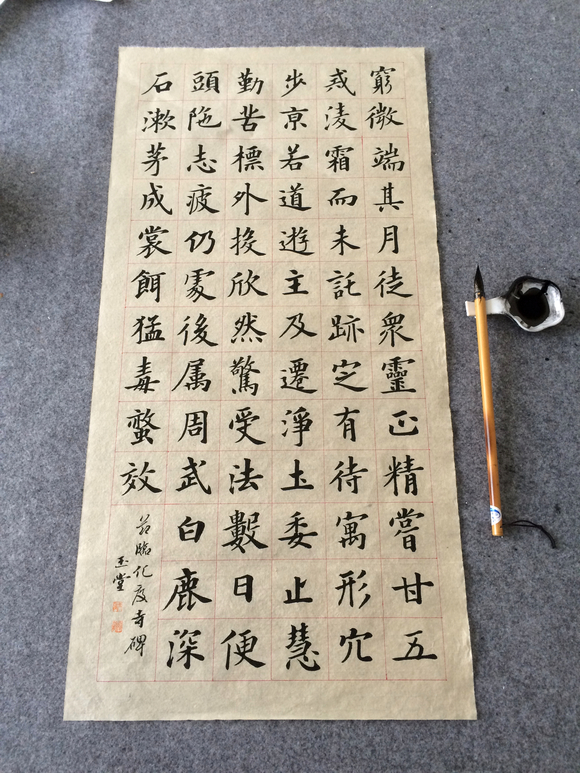 窮微端其月徒衆靈正精嘗甘五
惑凌霜而未託跡㝎有待寓形穴
步京若道遊主及遷淨土委止慧
勤苦標外揆欣然驚受法數日便
頭陁志疲仍處後属周武白鹿深
石漱茅成裳餌猛毒螫效
節臨化度寺碑
玉堂